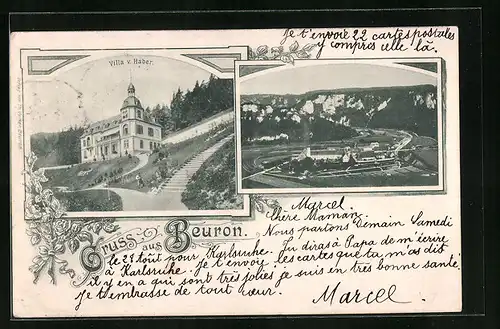 Je t'envoie 22 cartes postales
y compris celle là.
Villa v. Haber.
Marcel.
Chère Maman,
Nous partons Demain Samedi
Gruss aus Beuron.
le 28 août pour Karlsruhe. Tu diras à Papa de m'écrire
à Karlsruhe. Je t'envoie les cartes que tu m'as dit
il y en a qui sont très jolies je suis en très bonne santé.
Je t'embrasse de tout cœur.
Marcel.